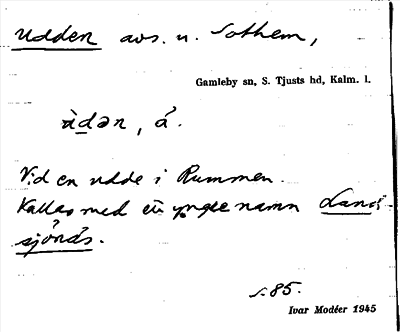 Udden avs. u. Sothem,
Gamleby sn, S. Tjusts hd, Kalm. l.
ùdən, á.
Vid en udde i Rummen.
Kallas med ett yngre namn Lands-
sjönäs.
s. 85.
Ivar Modéer 1945